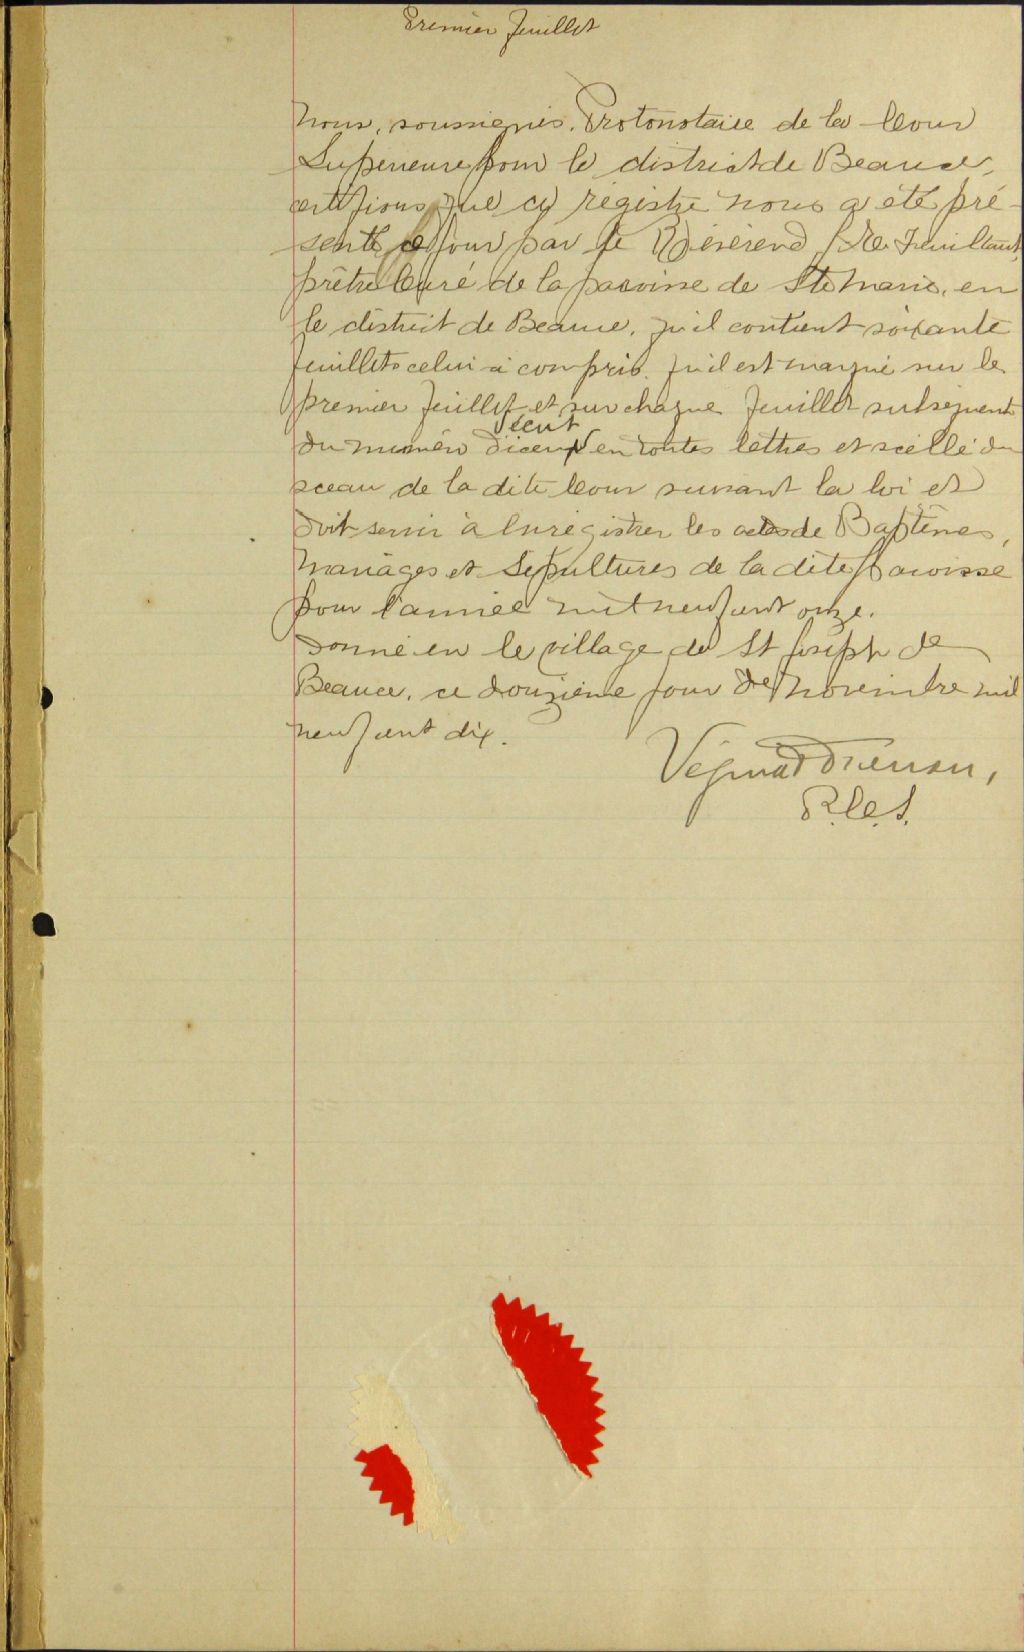 Premier feuillet
Nous, soussignés, Protonotaire de la Cour
Supérieure pour le district de Beauce,
certifions que ce régistre nous a été pré-
senté ce jour par le Révérend J. E. Feuiltault,
prêtre Curé de la paroisse de Ste Marie, en
le district de Beauce, qu'il contient soixante
feuillets celui ci compris, qu'il est marqué sur le
premier feuillet et sur chaque feuillet subséquent
du numéro d'iceux écrit en toutes lettres et scellé du
sceau de la dite Cour suivant la loi et
doit servir à Enrégistrer les actes de Baptêmes,
Mariages et Sépultures de la dite Paroisse
pour l'année mil neuf cent onze.
Donné en le village de St Joseph de
Beauce, ce douzième jour de Novembre mil
neuf cent dix.
P.C.S.